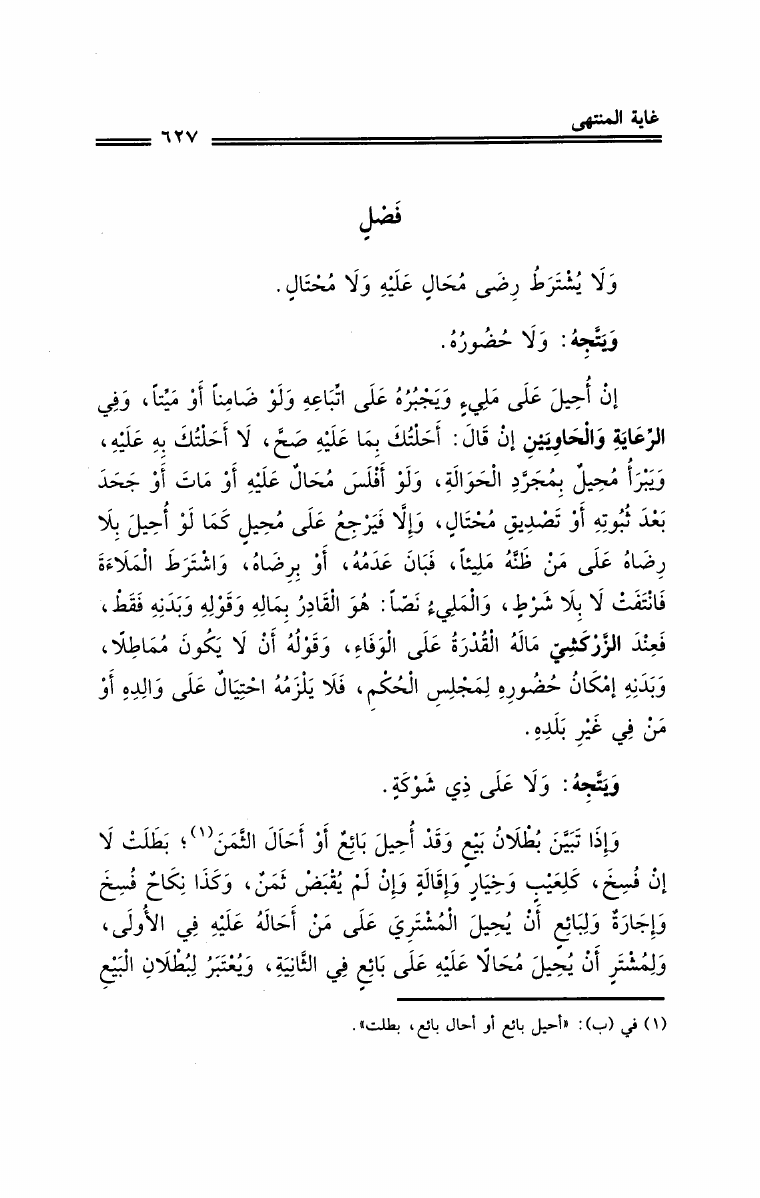 غاية المنتهى
٦٢٧
فَصْلٍ
وَلَا يُشْتَرَطُ رِضَى مُحَالٍ عَلَيْهِ وَلَا مُحْتَالٍ.
وَيَتَّجِهُ: وَلَا حُضُورُهُ.
إنْ أُحِيلَ عَلَى مَلِيءٍ وَيَجْبُرُهُ عَلَى اتِّبَاعِهِ وَلَوْ ضَامِناً أَوْ مَيِّتاً، وَفِي
الرِّعَايَةِ وَالْحَاوِيَيْنِ إنْ قَالَ: أَحَلْتُكَ بِمَا عَلَيْهِ صَحَّ، لَا أَحَلْتُكَ بِهِ عَلَيْهِ،
وَيَبْرَأُ مُحِيلٌ بِمُجَرَّدِ الْحَوَالَةِ، وَلَوْ أَفْلَسَ مُحَالٌ عَلَيْهِ أَوْ مَاتَ أَوْ جَحَدَ
بَعْدَ ثُبُوتِهِ أَوْ تَصْدِيقِ مُحْتَالٍ، وَإِلَّا فَيَرْجِعُ عَلَى مُحِيلٍ كَمَا لَوْ أُحِيلَ بِلَا
رِضَاهُ عَلَى مَنْ ظَنَّهُ مَلِيئاً، فَبَانَ عَدَمُهُ، أَوْ بِرِضَاهُ، وَاشْتَرَطَ الْمَلَاءَةَ
فَانْتَفَتْ لَا بِلَا شَرْطٍ، وَالْمَلِيءُ نَصّاً: هُوَ الْقَادِرُ بِمَالِهِ وَقَوْلِهِ وَبَدَنِهِ فَقَطْ،
فَعِنْدَ الزَّرْكَشِيِّ مَالَهُ الْقُدْرَةُ عَلَى الْوَفَاءِ، وَقَوْلُهُ أَنْ لَا يَكُونَ مُمَاطِلًا،
وَبَدَنِهِ إمْكَانُ حُضُورِهِ لِمَجْلِسِ الْحُكْمِ، فَلَا يَلْزَمُهُ احْتِيَالٌ عَلَى وَالِدِهِ أَوْ
مَنْ فِي غَيْرِ بَلَدِهِ.
وَيَتَّجِهُ: وَلَا عَلَى ذِي شَوْكَةٍ.
وَإِذَا تَبَيَّنَ بُطْلَانُ بَيْعٍ وَقَدْ أُحِيلَ بَائِعٌ أَوْ أَحَالَ الثَّمَنَ(١)؛ بَطَلَتْ لَا
إنْ فُسِخَ، كَلِعَيْبٍ وَخِيَارٍ وَإِقَالَةٍ وَإِنْ لَمْ يُقْبَضْ ثَمَنٌ، وَكَذَا نِكَاحٌ فُسِخَ
وَإِجَارَةٌ وَلِبَائِعٍ أَنْ يُحِيلَ الْمُشْتَرِيَ عَلَى مَنْ أَحَالَهُ عَلَيْهِ فِي الأُولَى،
وَلِمُشْتَرٍ أَنْ يُحِيلَ مُحَالًا عَلَيْهِ عَلَى بَائِعٍ فِي الثَّانِيَةِ، وَيُعْتَبَرُ لِبُطْلَانِ الْبَيْعِ
(١) في (ب): «أحيل بائع أو أحال بائع، بطلت».